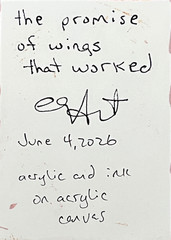 the promise
of wings
that worked
June 4, 2026
acrylic and ink
on acrylic
canvas